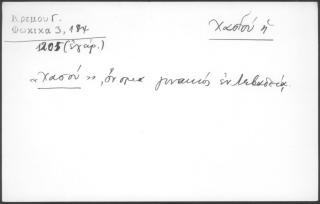 Κρέμου Γ.
Φωκικά 3, 184
1205 (ἐγάρ.)
Χασοῦ ἡ
«Χασοῦ», ὄνομα γυναικός ἐν Λεβαδείᾳ